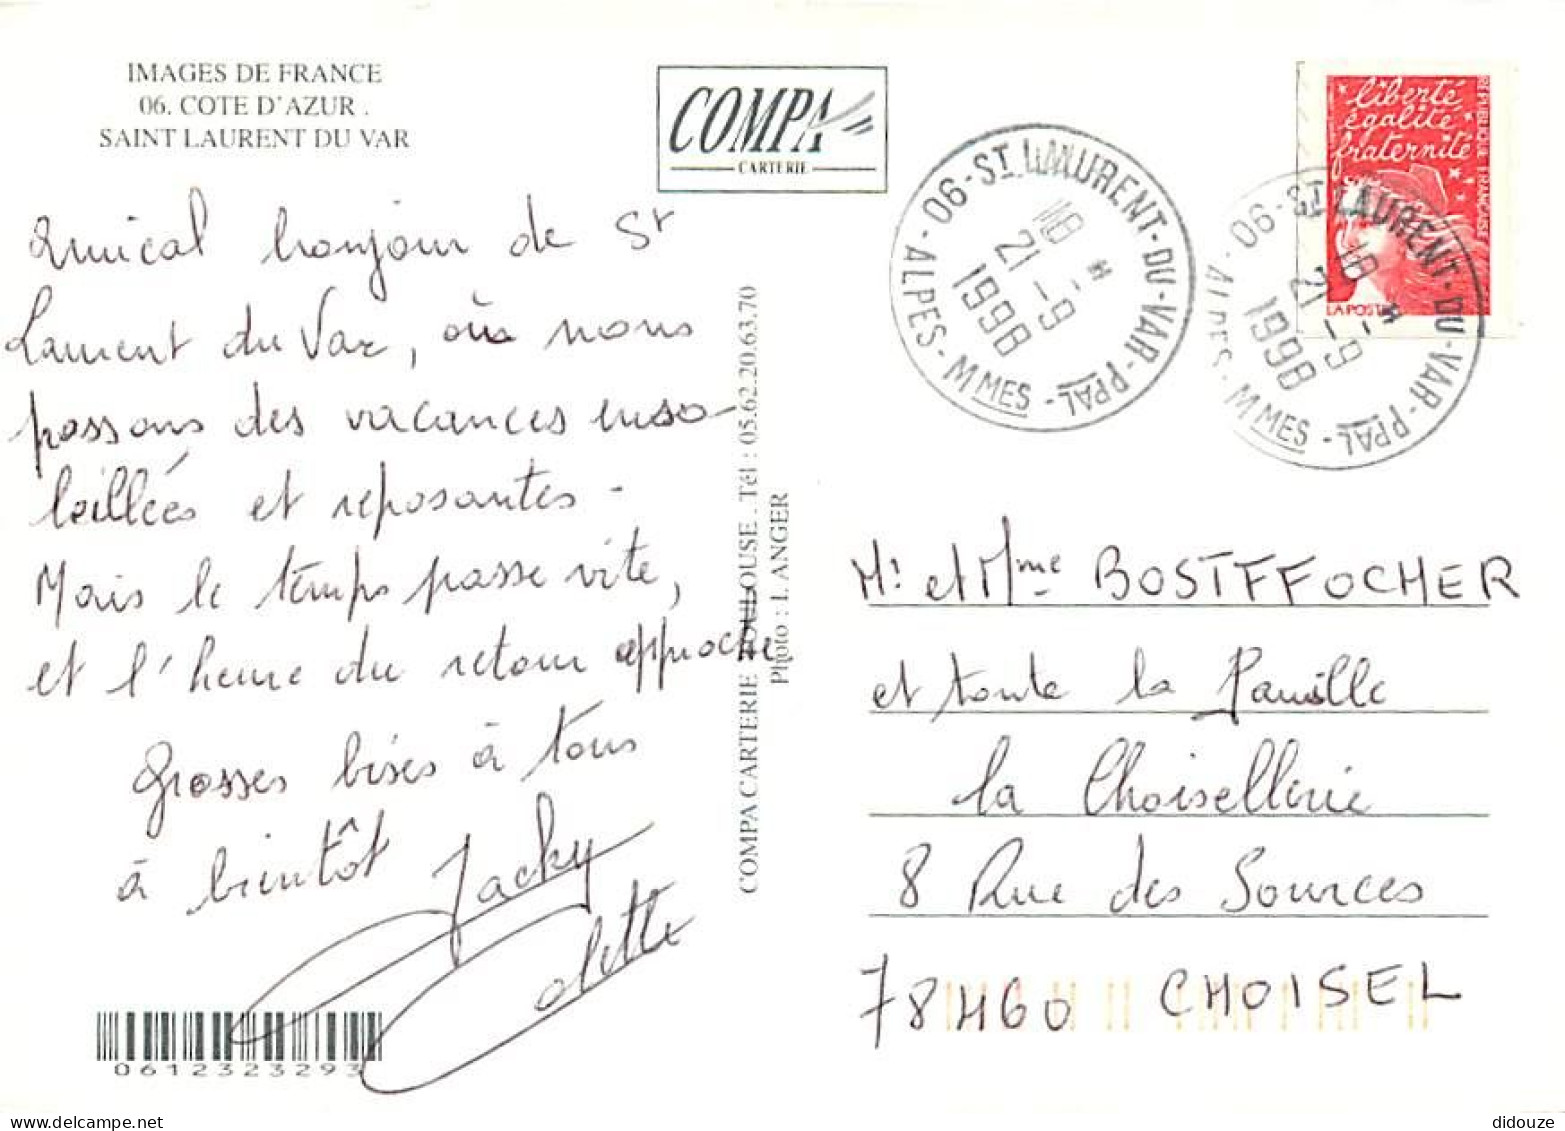 IMAGES DE FRANCE
06. COTE D'AZUR .
SAINT LAURENT DU VAR
COMPA
CARTERIE
Amical bonjour de St
Laurent du Var, où nous
passons des vacances enso-
leillées et reposantes -
Mais le temps passe vite,
et l'heure du retour approche
Grosses bises à tous
à bientôt Jacky
Odette
0612323293
COMPA CARTERIE TOULOUSE . Tél : 05.62.20.63.70
Photo : L ANGER
06 - ST LAURENT - DU - VAR - PPAL - ALPES - MMES
18 H
21 - 9
1998
liberté
égalité
fraternité
REPUBLIQUE FRANÇAISE
LA POSTE
06 - ST LAURENT - DU - VAR - PPAL - ALPES - MMES
18 H
21 - 9
1998
Mr et Mme BOSTFFOCHER
et toute la famille
la Choisellerie
8 Rue des Sources
78460 CHOISEL
didouze